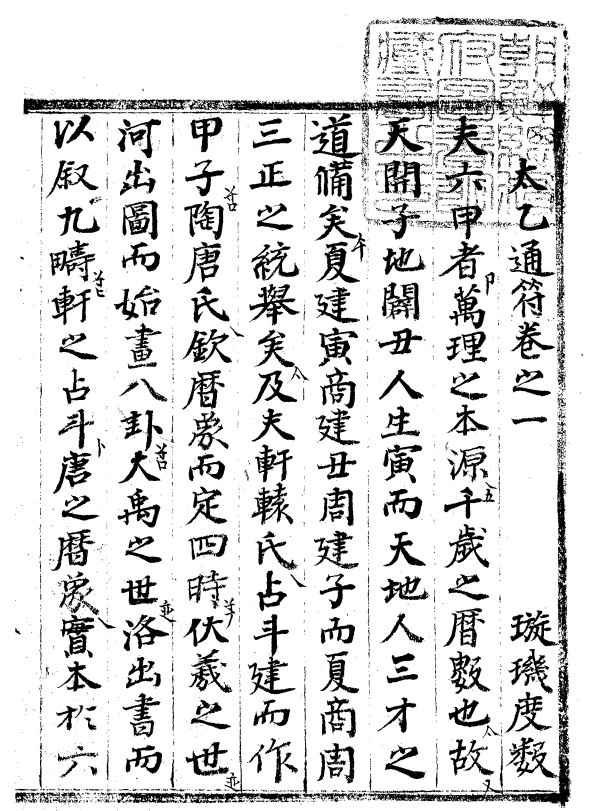 太乙通符卷之一 璇璣度數
夫六甲者萬理之本源千歲之曆數也故
天開子地闢丑人生寅而天地人三才之
道備矣夏建寅商建丑周建子而夏商周
三正之統舉矣及夫軒轅氏占斗建而作
甲子陶唐氏欽曆象而定四時伏羲之世
河出圖而始畫八卦大禹之世洛出書而
以叙九疇軒之占斗唐之曆象實本於六